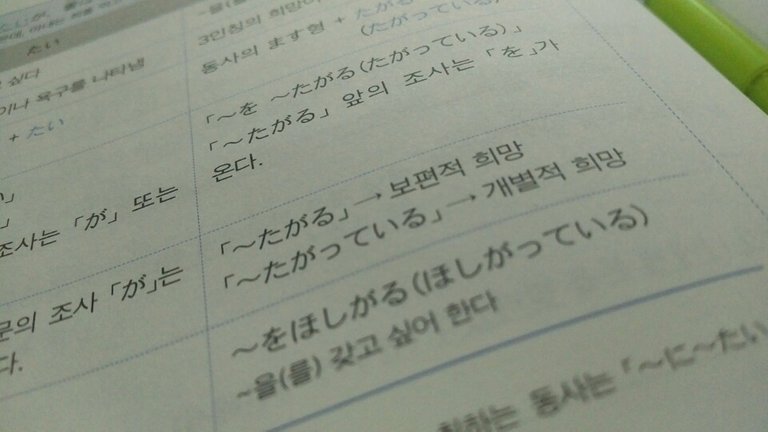 たい
3인칭의 희망이
싶다
동사의 ます형 + たがる
이나 욕구를 나타냄
(たがっている)
+ たい
「～を ～たがる(たがっている)」
「～たがる」 앞의 조사는 「を」가
온다.
조사는 「が」 또는
「～たがる」→ 보편적 희망
「～たがっている」→ 개별적 희망
문의 조사 「が」는
다.
～をほしがる(ほしがっている)
~을(를) 갖고 싶어 한다
동사는 「～に～たい